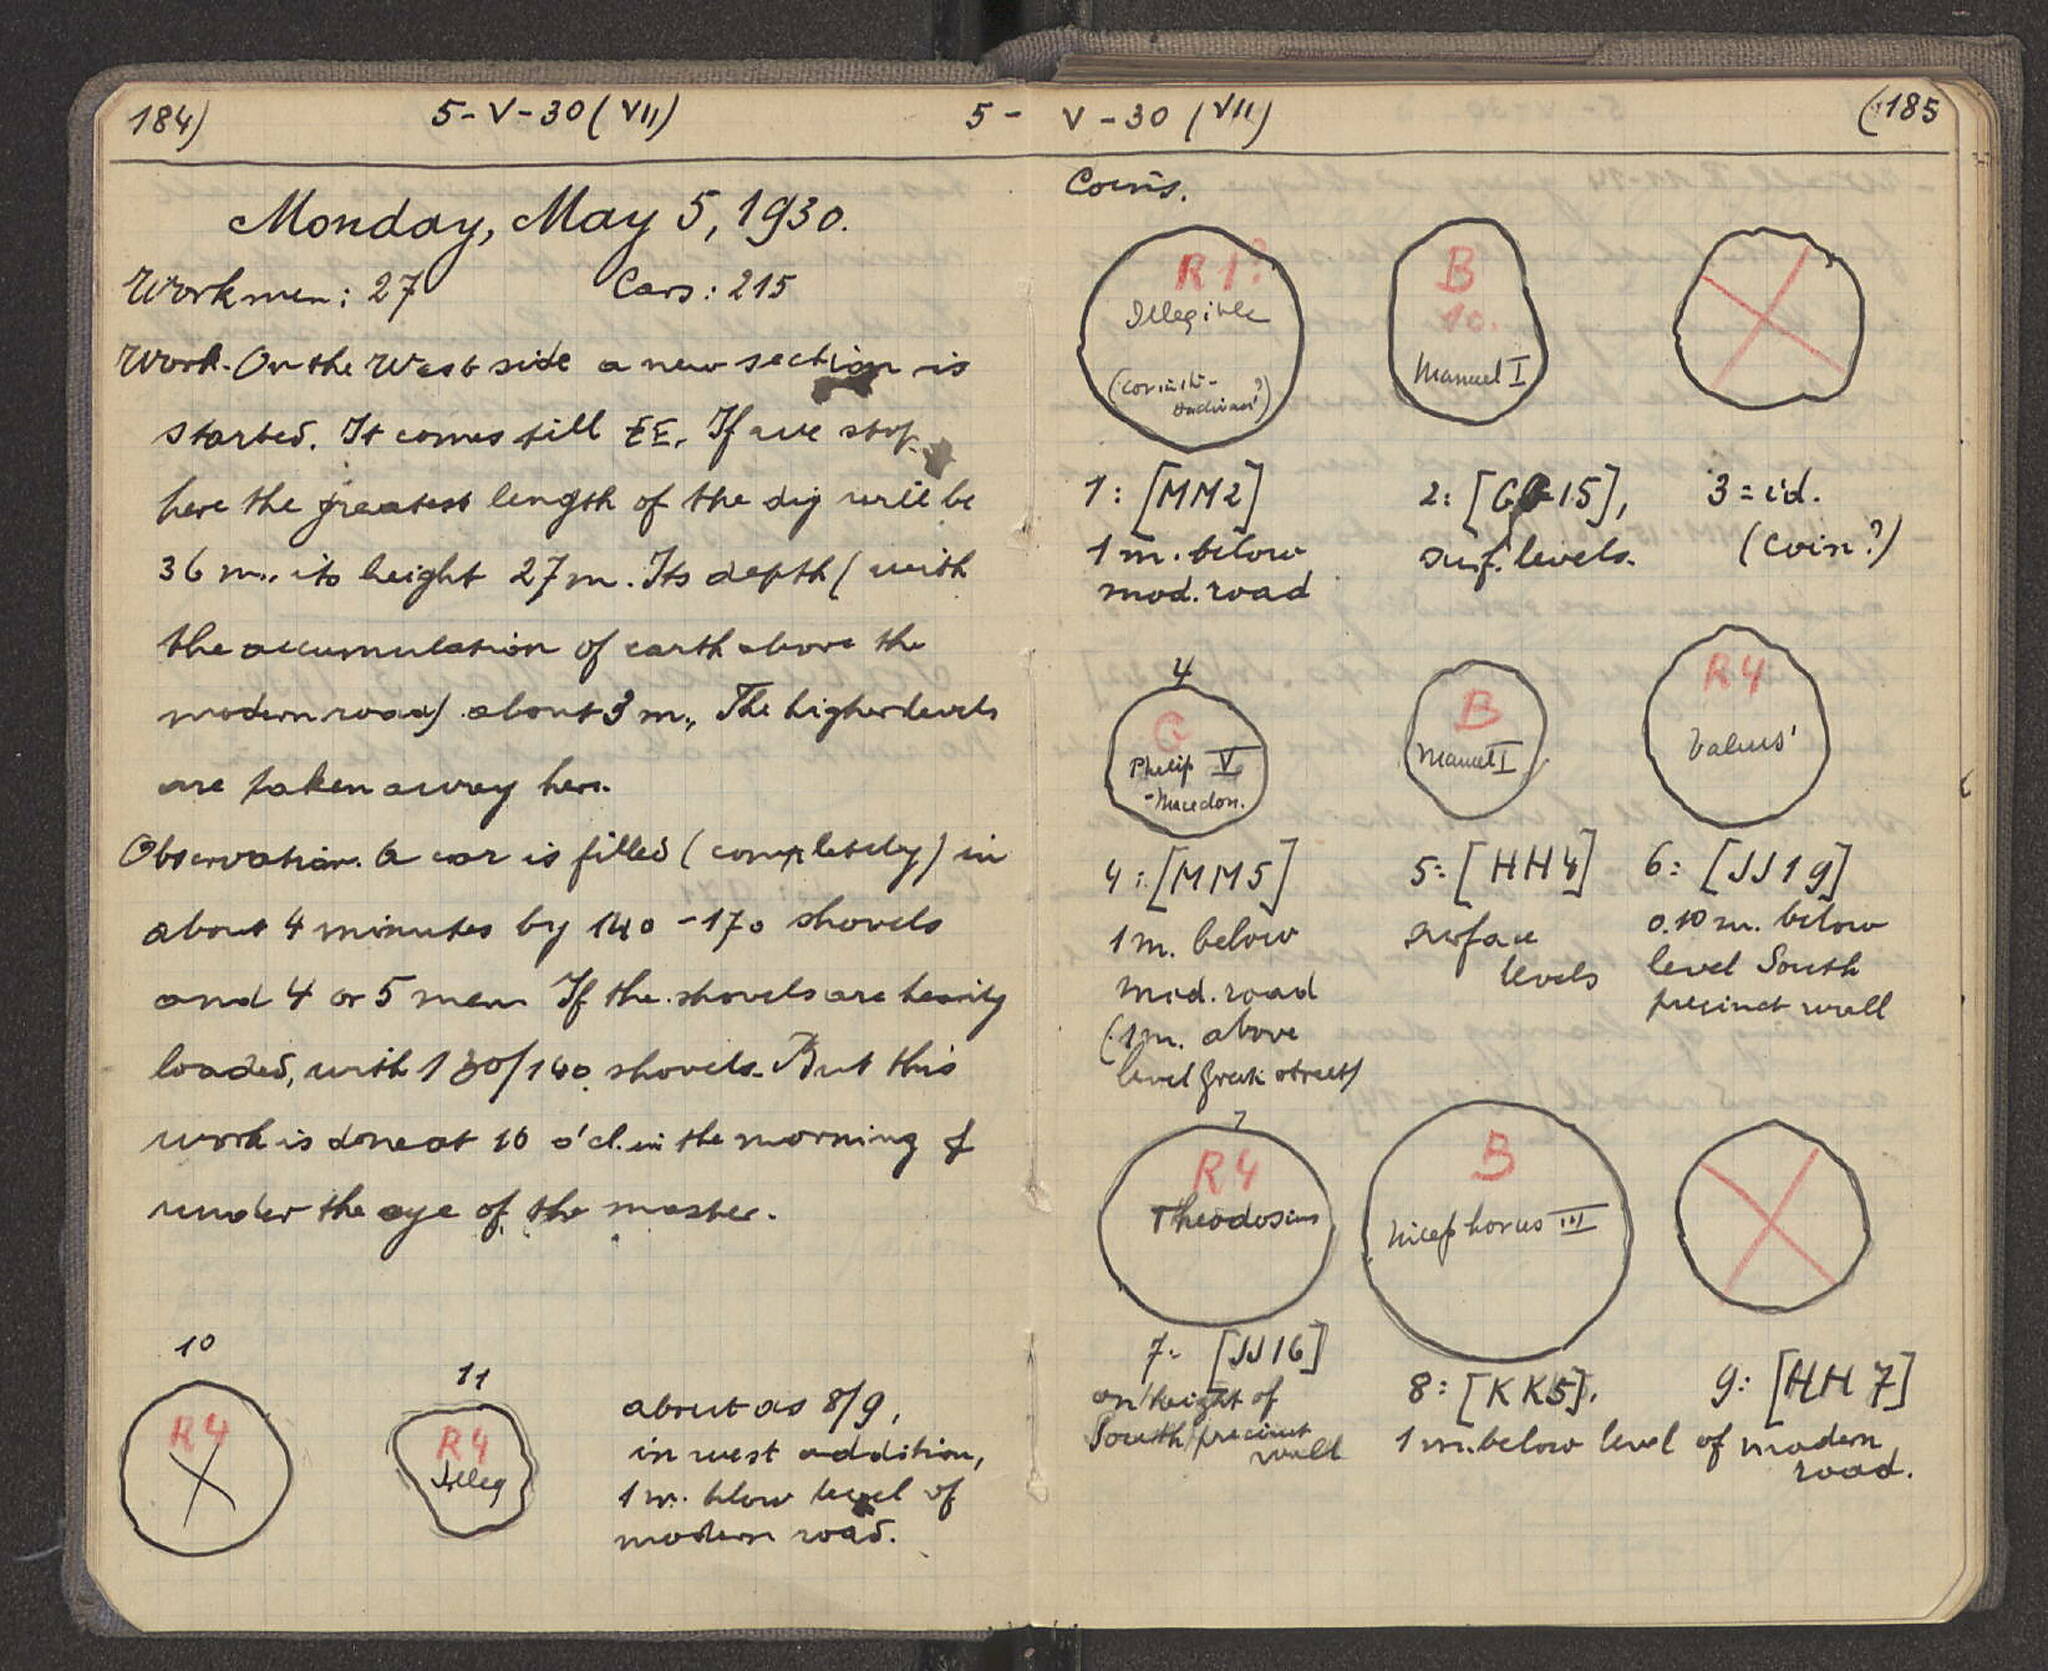 184) 5-V-30 (VII)
Monday, May 5, 1930.
Workmen: 27 Cars: 215
Work. On the West side a new section is
started. It comes till EE. If we stop
here the greatest length of the dig will be
36 m., its height 27 m. Its depth (with
the accumulation of earth above the
modern road) about 3 m., The higher levels
are taken away here.
Observation. A car is filled (completely) in
about 4 minutes by 140-170 shovels
and 4 or 5 men. If the shovels are heavily
loaded, with 130/140 shovels. But this
work is done at 10 o'cl. in the morning &
under the eye of the master.
10
R4
11
R4
Illeg
about as 8/9,
in west addition,
1 m. blow level of
modern road.
5-V-30 (VII) (185
Coins.
R1?
Illegible
(Corinth-
B
10.
Manuel I
1: [MM2]
1 m. below
mod. road
2: [GG15],
surf. levels.
3 = id.
(coin?)
4
G
Philip V
-Macedon.
B
Manuel I
R4
4: [MM5]
1 m. below
mod. road
(1 m. above
level Greek street)
5: [HH4]
surface
levels
6: [JJ19]
0.10 m. below
level South
precinct wall
7
R4
Theodosius
B
Nicephorus III
7: [JJ16]
on height of
South precinct
wall
8: [KK5].
9: [HH7]
1 m. below level of modern
road.